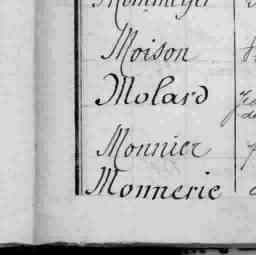 Moison
Molard
Monnier
Monnerie